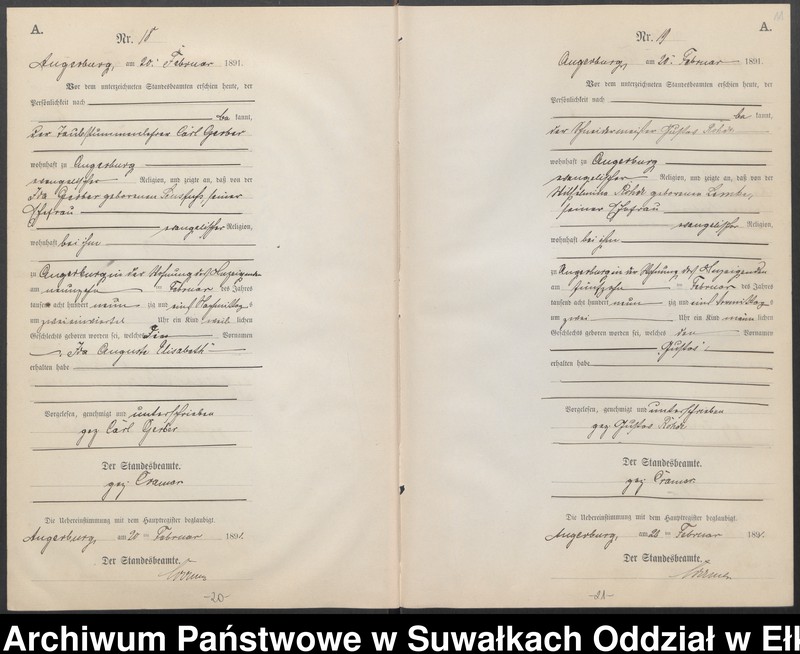 A.
Nr. 18
Angerburg, am 20. Februar 1891.
Vor dem unterzeichneten Standesbeamten erschien heute, der
Persönlichkeit nach
bekannt,
Der Taubstummenlehrer Carl Gerber
wohnhaft zu Angerburg
evangelischer Religion, und zeigte an, daß von der
Ida Gerber geborenen seiner
Ehefrau
evangelischer Religion,
wohnhaft bei ihm
zu Angerburg in der Wohnung des Anzeigenden
am neunzehn ten Februar des Jahres
tausend acht hundert neun zig und eins Nachmittag s
um zwei einviertel Uhr ein Kind weib lichen
Geschlechts geboren worden sei, welches die Vornamen
Ida Auguste Elisabeth
erhalten habe
Vorgelesen, genehmigt und unterschrieben
gez Carl Gerber
Der Standesbeamte.
gez Cramer
Die Uebereinstimmung mit dem Hauptregister beglaubigt.
Angerburg, am 20 ten Februar 1891.
Der Standesbeamte.
Cramer
-20-
A.
Nr. 19
Angerburg, am 20. Februar 1891.
Vor dem unterzeichneten Standesbeamten erschien heute, der
Persönlichkeit nach
bekannt,
der Schneidermeister Gustav
wohnhaft zu Angerburg
evangelischer Religion, und zeigte an, daß von der
Wilhelmine geborenen Lemke,
seiner Ehefrau
evangelischer Religion,
wohnhaft bei ihm
zu Angerburg in der Wohnung des Anzeigenden
am fünfzehn ten Februar des Jahres
tausend acht hundert neun zig und eins Vormittag s
um zwei Uhr ein Kind männ lichen
Geschlechts geboren worden sei, welches den Vornamen
Gustav
erhalten habe
Vorgelesen, genehmigt und unterschrieben
gez Gustav
Der Standesbeamte.
gez Cramer
Die Uebereinstimmung mit dem Hauptregister beglaubigt.
Angerburg, am 20 ten Februar 1891.
Der Standesbeamte.
Cramer
-21-
Archiwum Państwowe w Suwałkach Oddział w Ełk